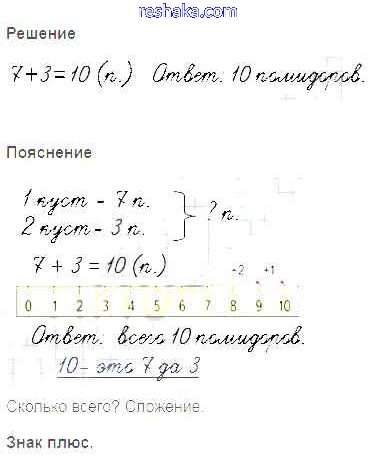 reshaka.com
Решение
7+3=10 (п.) Ответ: 10 помидоров.
Пояснение
1 куст - 7 п.
2 куст - 3 п.
} ? п.
7 + 3 = 10 (п.)
+2 +1
0 1 2 3 4 5 6 7 8 9 10
Ответ: всего 10 помидоров.
10 - это 7 да 3
Сколько всего? Сложение.
Знак плюс.